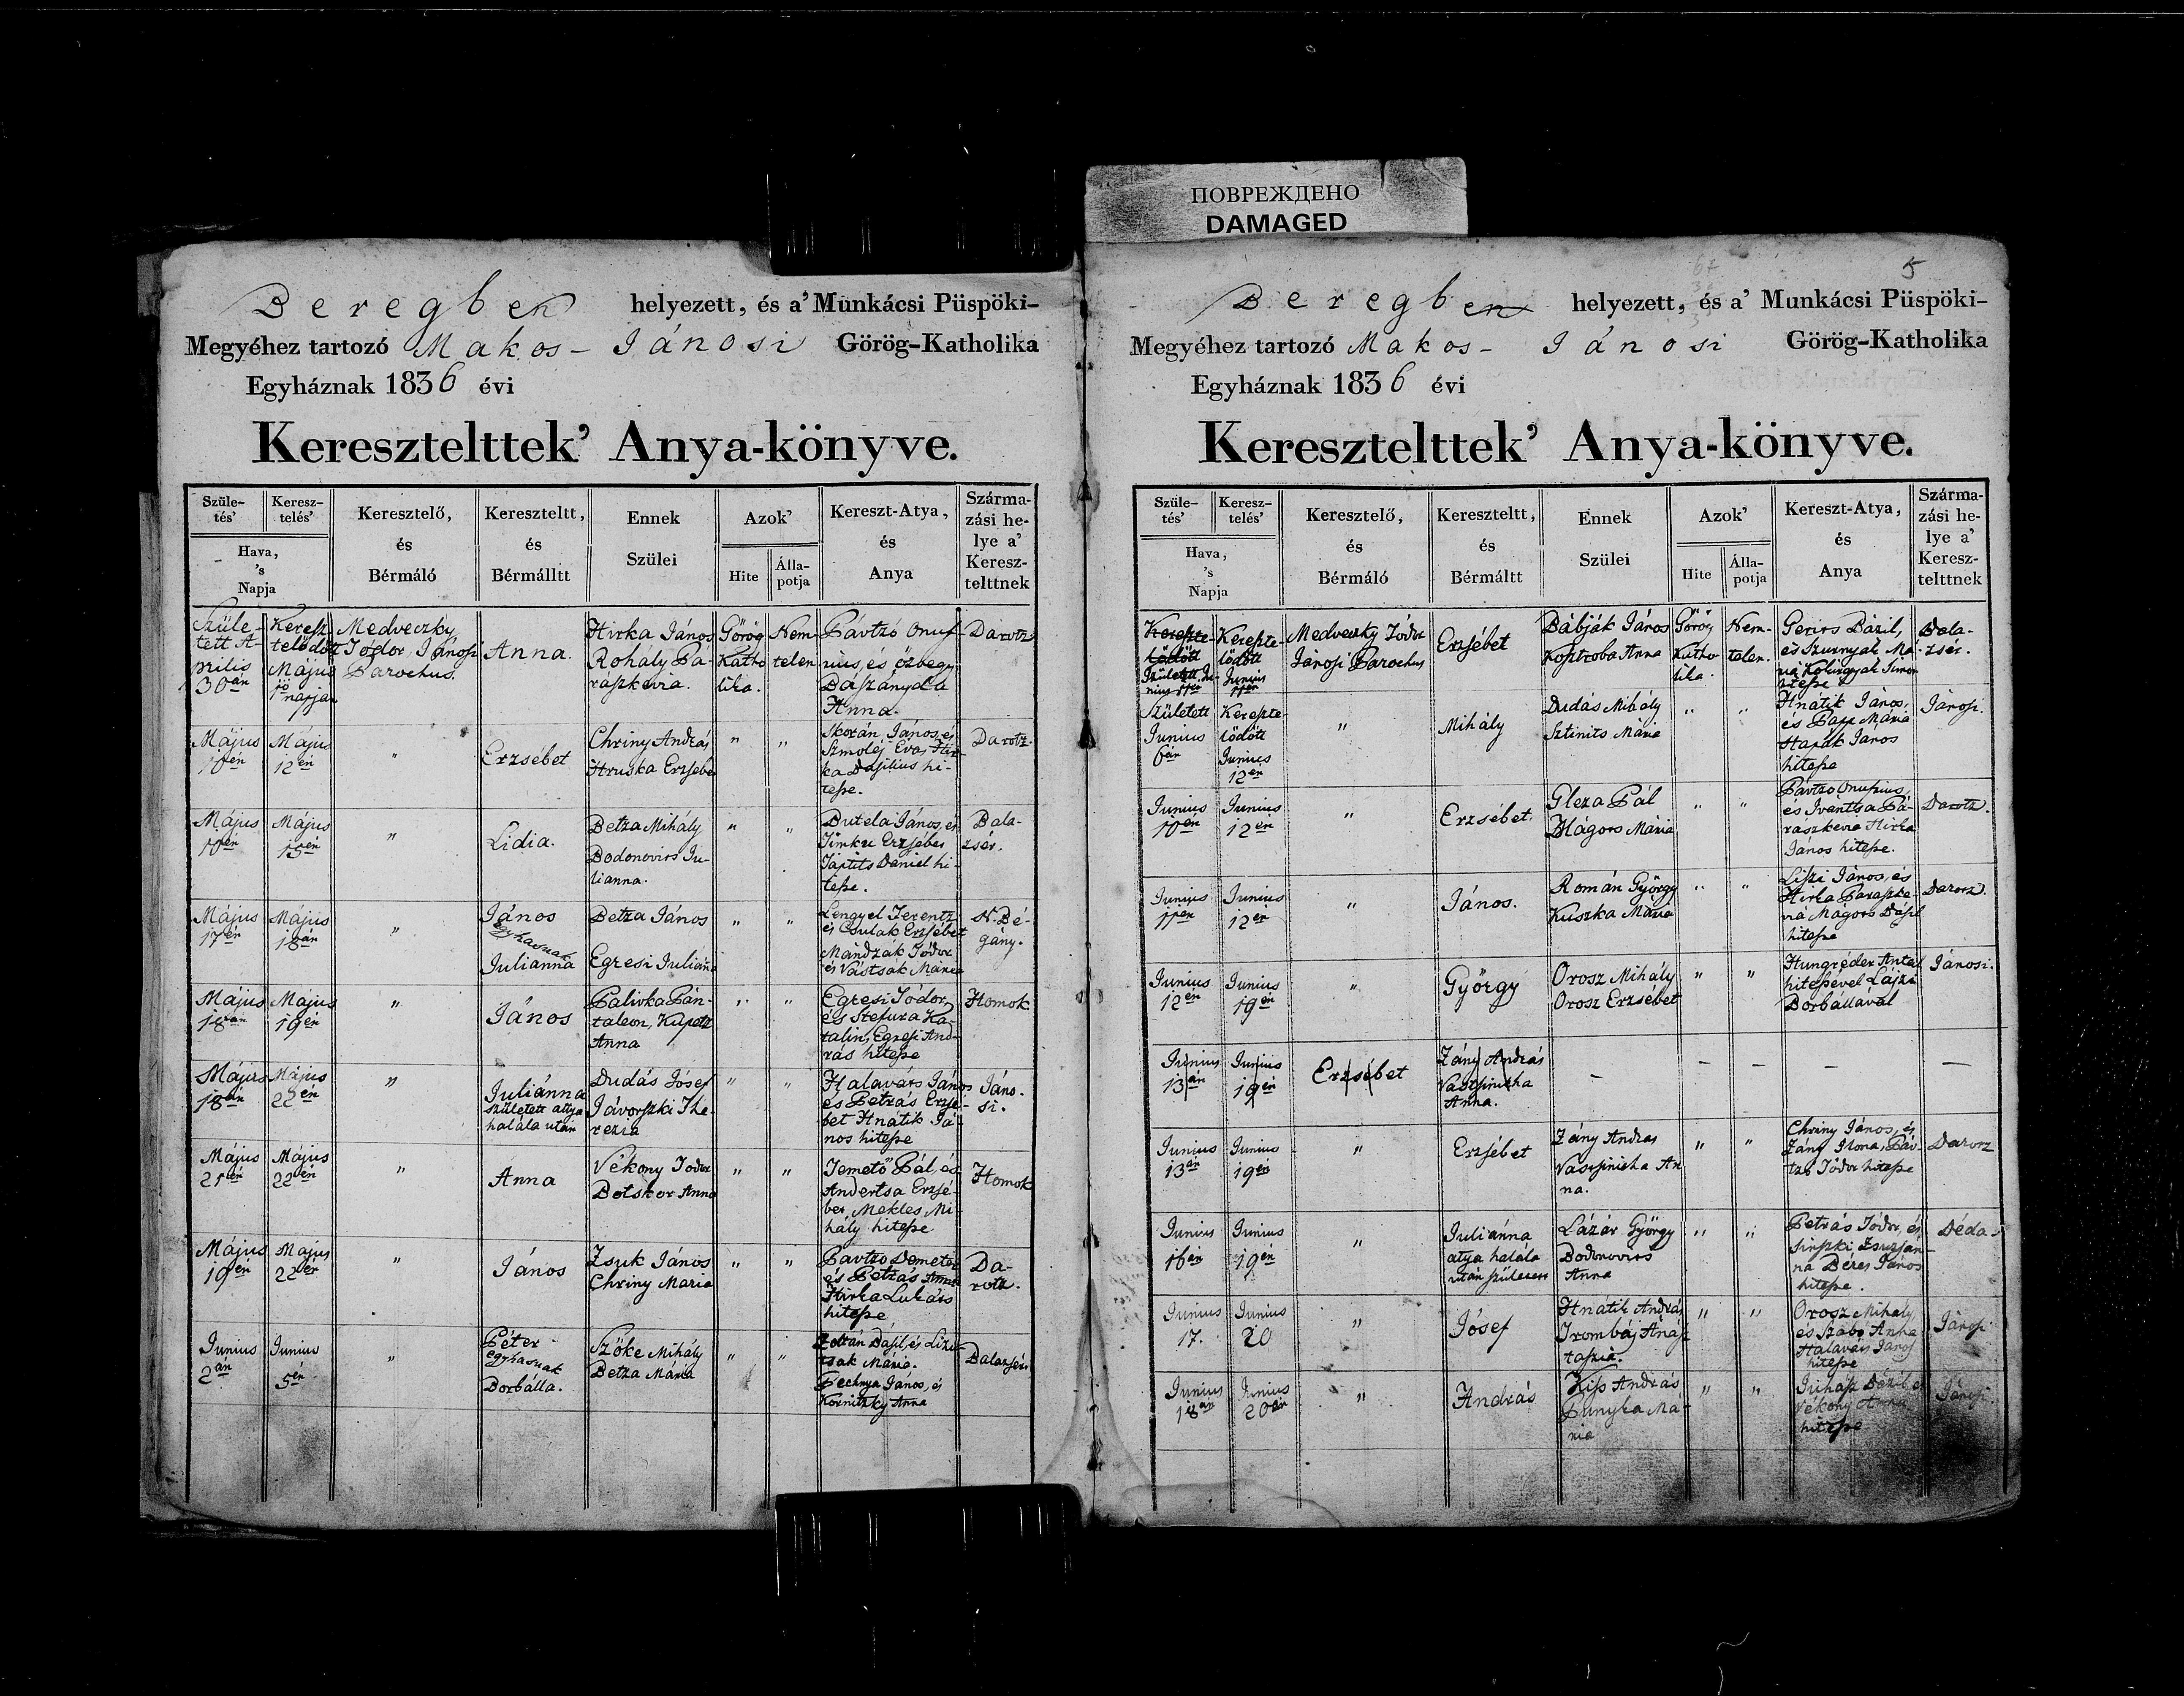 ПОВРЕЖДЕНО
DAMAGED
Beregben helyezett, és a' Munkácsi Püspöki-
Megyéhez tartozó Makos- Jánosi Görög-Katholika
Egyháznak 1836 évi
Keresztelttek' Anya-könyve.
Szüle-
tés'
Keresz-
telés'
Hava,
's
Napja
Keresztelő,
és
Bérmáló
Kereszteltt,
és
Bérmálltt
Ennek
Szülei
Azok'
Hite
Álla-
potja
Kereszt-Atya,
és
Anya
Szárma-
zási he-
lye a'
Keresz-
telttnek
Szüle-
tett A-
prilis
30án
Keresz-
telődött
Május
napján
Medveczky
Tódor, Jánosi
Parochus.
Anna.
Hirka János
Rohály Pa-
raszkevia.
Görög
Katho
lika.
Nem-
telen
Pavtzó Onuf-
rius, és özvegy
Anna.
Darotz
Május
10én
Május
12én
"
Erzsébet
Chriny András
Hruska Erzsébet
"
"
Skorán János, és
Szmoléj Éva Hir-
ka Vasilius hi-
tesse.
Darotz.
Május
10én
Május
15én
"
Lidia.
Betza Mihály
Bodonovits Ju-
lianna.
"
"
Dutela János, és
Timku Erzsébet
Daniel hi-
tesse.
Bala-
zsér.
Május
17én
Május
18án
"
János
egyhasuak
Julianna
Betza János
Egresi Julianna
"
"
Lengyel Ferentz
és Csulak Erzsébet
Mandzák Tódor
és Vastsák Mária
N. Bé-
gány.
Május
18án
Május
19én
"
János
Palivka Pán-
taleon, Kupetz
Anna
"
"
Egresi Tódor,
és Stefura Ka-
talin, Egresi And-
rás hitesse
Homok
Május
18án
Május
22én
"
Juliánna
született attya
halála után
Dudás Jósef
Jávorszki The-
rezia
"
"
Halavárs János
és Petrás Erzsé-
bet Hnátik Já-
nos hitesse
Jáno-
si.
Május
21én
Május
22én
"
Anna
Vékony Todor
Botskor Anna
"
"
Temető Pál, és
Andertsa Erzsé-
bet, Mekles Mi-
hály hitesse
Homok
Május
19én
Május
22én
"
János
Zsuk János
Chriny Maria
"
"
Pavtzo Demeter
és Petrás Anna
Hirka Lukáts
hitesse
Da-
rotz.
Junius
2án
Junius
5én
"
Péter
egyhasuak
Borbálla.
Szőke Mihály
Betza Mária
"
"
Zoltán Vasil, és
Mária.
Pechnya János, és
Kornitzky Anna
Balazsér.
5
Beregben helyezett, és a' Munkácsi Püspöki-
Megyéhez tartozó Makos- Jánosi Görög-Katholika
Egyháznak 1836 évi
Keresztelttek' Anya-könyve.
Szüle-
tés'
Keresz-
telés'
Hava,
's
Napja
Keresztelő,
és
Bérmáló
Kereszteltt,
és
Bérmáltt
Ennek
Szülei
Azok'
Hite
Álla-
potja
Kereszt-Atya,
és
Anya
Szárma-
zási he-
lye a'
Keresz-
telttnek
Kereszte-
lődött
Született Ju-
nius
Kereszte-
lődött
Junius
Medveczky Tódor
Jánosi Parochus
Erzsébet
Bábják János
Kosztroba Anna
Görög
Katho-
lika.
Nem-
telen.
és Szurnyak Má-
ria
hitesse
Bala-
zsér.
Született
Junius
6án
Kereszte-
lődött
Junius
12én
"
Mihály
Dudás Mihály
Sztinits Mária
"
"
Hnátik János,
és Papp Mária
János
hitesse
Jánosi.
Junius
10én
Junius
12én
"
Erzsébet
Gleza Pál
Mágors Mária
"
"
Pavtzo Onufrius,
és Ivantsa Pa-
raszkevia Hirka
János hitesse.
Darotz.
Junius
11én
Junius
12én
"
János.
Román György
Kuszka Mária
"
"
Liszi János, és
Hirka Paraszke-
via Mágors Vasil
hitesse
Darotz.
Junius
12én
Junius
19én
"
György
Orosz Mihály
Orosz Erzsébet
"
"
Hungréder Antal
hitesével Lájzi
Borbállával
Jánosi.
Junius
13án
Junius
19én
Erzsébet
Zány András
Anna.
–
–
–
–
–
Junius
13án
Junius
19én
"
Erzsébet
Zány Andras
An-
na.
"
"
Chriny János, és
Zány Ilona, Páv-
tzo Tódor hitesse
Darotz
Junius
16án
Junius
19én
"
Juliánna
atya halála
után született
Lázár György
Bodonovits
Anna
"
"
Petrás Tódor, és
Zsuzsán-
na Béres János
hitesse.
Déda
Junius
17.
Junius
20
"
Jósef
Hnátik András
Trombáj Anasz-
tászia.
"
"
Orosz Mihály
és Szabo Anna
Halavárs János
hitesse
Jánosi
Junius
18án
Junius
20án
"
András
Kiss András
Punyka Má-
ria
"
"
Juhász Bazil, és
Vékony Anna
hitesse
Jánosi